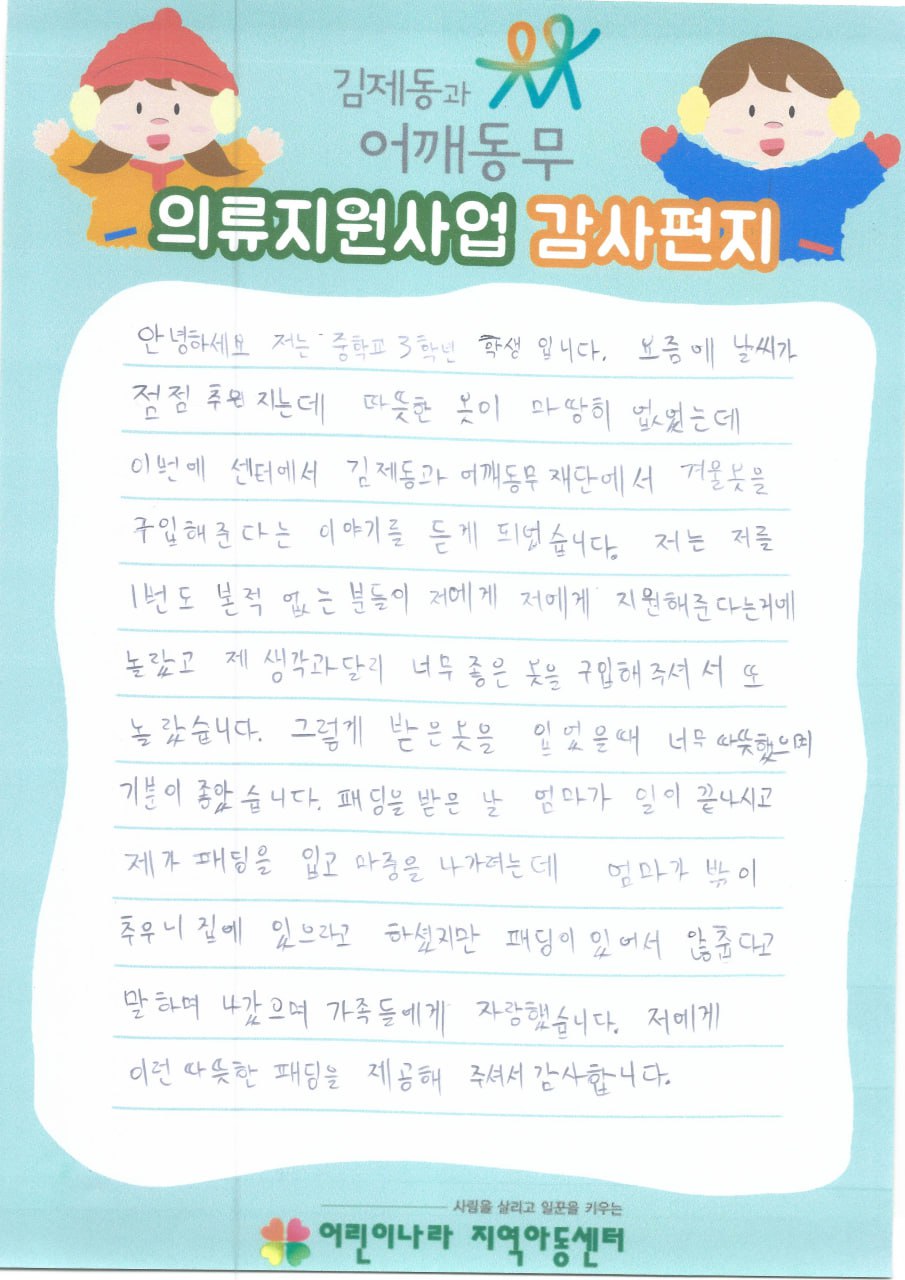 김제동과
어깨동무
의류지원사업 감사편지
안녕하세요 저는 중학교 3학년 학생 입니다. 요즘에 날씨가
점점 추워 지는데 따뜻한 옷이 마땅히 없었는데
이번에 센터에서 김제동과 어깨동무 재단에서 겨울옷을
구입해준다는 이야기를 듣게 되었습니다. 저는 저를
1번도 본적 없는 분들이 저에게 저에게 지원해준다는거에
놀랐고 제 생각과달리 너무 좋은 옷을 구입해주셔서 또
놀랐습니다. 그렇게 받은옷을 입었을때 너무 따뜻했으며
기분이 좋았습니다. 패딩을 받은 날 엄마가 일이 끝나시고
제가 패딩을 입고 마중을 나가려는데 엄마가 밖이
추우니 집에 있으라고 하셨지만 패딩이 있어서 않춥다고
말하며 나갔으며 가족들에게 자랑했습니다. 저에게
이런 따뜻한 패딩을 제공해 주셔서 감사합니다.
사람을 살리고 일꾼을 키우는
어린이나라 지역아동센터